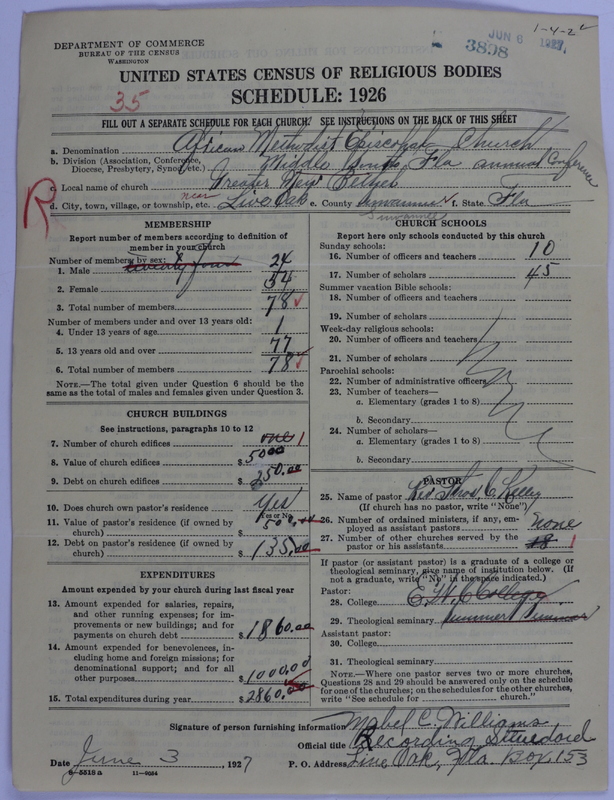 1-4-22
JUN 6 1927
3898
DEPARTMENT OF COMMERCE
BUREAU OF THE CENSUS
WASHINGTON
UNITED STATES CENSUS OF RELIGIOUS BODIES
35
SCHEDULE: 1926
FILL OUT A SEPARATE SCHEDULE FOR EACH CHURCH. SEE INSTRUCTIONS ON THE BACK OF THIS SHEET
a. Denomination African Methodist Episcopal Church
b. Division (Association, Conference, Diocese, Presbytery, Synod, etc.) Middle Fla annual Conference
c. Local name of church Greater New Bethel
R
d. City, town, village, or township, etc. near Live Oak e. County Suwannee f. State Fla
Suwannee
MEMBERSHIP
Report number of members according to definition of
member in your church
Number of members by sex:
1. Male twenty four 24
2. Female 54
3. Total number of members 78
Number of members under and over 13 years old:
4. Under 13 years of age 1
5. 13 years old and over 77
6. Total number of members 78
NOTE.—The total given under Question 6 should be
same as the total of males and females given under Question 3.
CHURCH BUILDINGS
See instructions, paragraphs 10 to 12
7. Number of church edifices one 1
8. Value of church edifices $ 5000
9. Debt on church edifices $ 250.00
10. Does church own pastor's residence Yes
Yes or No
11. Value of pastor's residence (if owned by
church) $
12. Debt on pastor's residence (if owned by
church) $ 135.00
EXPENDITURES
Amount expended by your church during last fiscal year
13. Amount expended for salaries, repairs,
and other running expenses; for im-
provements or new buildings; and for
payments on church debt $ 1860.00
14. Amount expended for benevolences, in-
cluding home and foreign missions; for
denominational support; and for all
other purposes $ 1000.00
15. Total expenditures during year $ 2860.00
CHURCH SCHOOLS
Report here only schools conducted by this church
Sunday schools:
16. Number of officers and teachers 10
17. Number of scholars 45
Summer vacation Bible schools:
18. Number of officers and teachers
19. Number of scholars
Week-day religious schools:
20. Number of officers and teachers
21. Number of scholars
Parochial schools:
22. Number of administrative officers
23. Number of teachers—
a. Elementary (grades 1 to 8)
b. Secondary
24. Number of scholars—
a. Elementary (grades 1 to 8)
b. Secondary
PASTOR
25. Name of pastor Rev Thos. C. Kelley
(If church has no pastor, write "None")
26. Number of ordained ministers, if any, em-
ployed as assistant pastors none
27. Number of other churches served by the
pastor or his assistants 1
If pastor (or assistant pastor) is a graduate of a college or
theological seminary, give name of institution below. (If
not a graduate, write "No" in the space indicated.)
Pastor:
28. College E. W. C College
29. Theological seminary
Assistant pastor:
30. College
31. Theological seminary
NOTE.—Where one pastor serves two or more churches,
Questions 28 and 29 should be answered only on the schedule
for one of the churches; on the schedules for the other churches,
write "See schedule for church."
Signature of person furnishing information Mabel C. Williams
Official title Recording
Date June 3, 1927 P. O. Address Live Oak, Fla. Box 153
8-5518a 11-9054